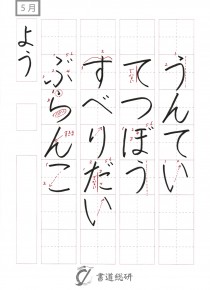 5月
うんてい
てつぼう
すべりだい
ぶらんこ
よう
書道総研